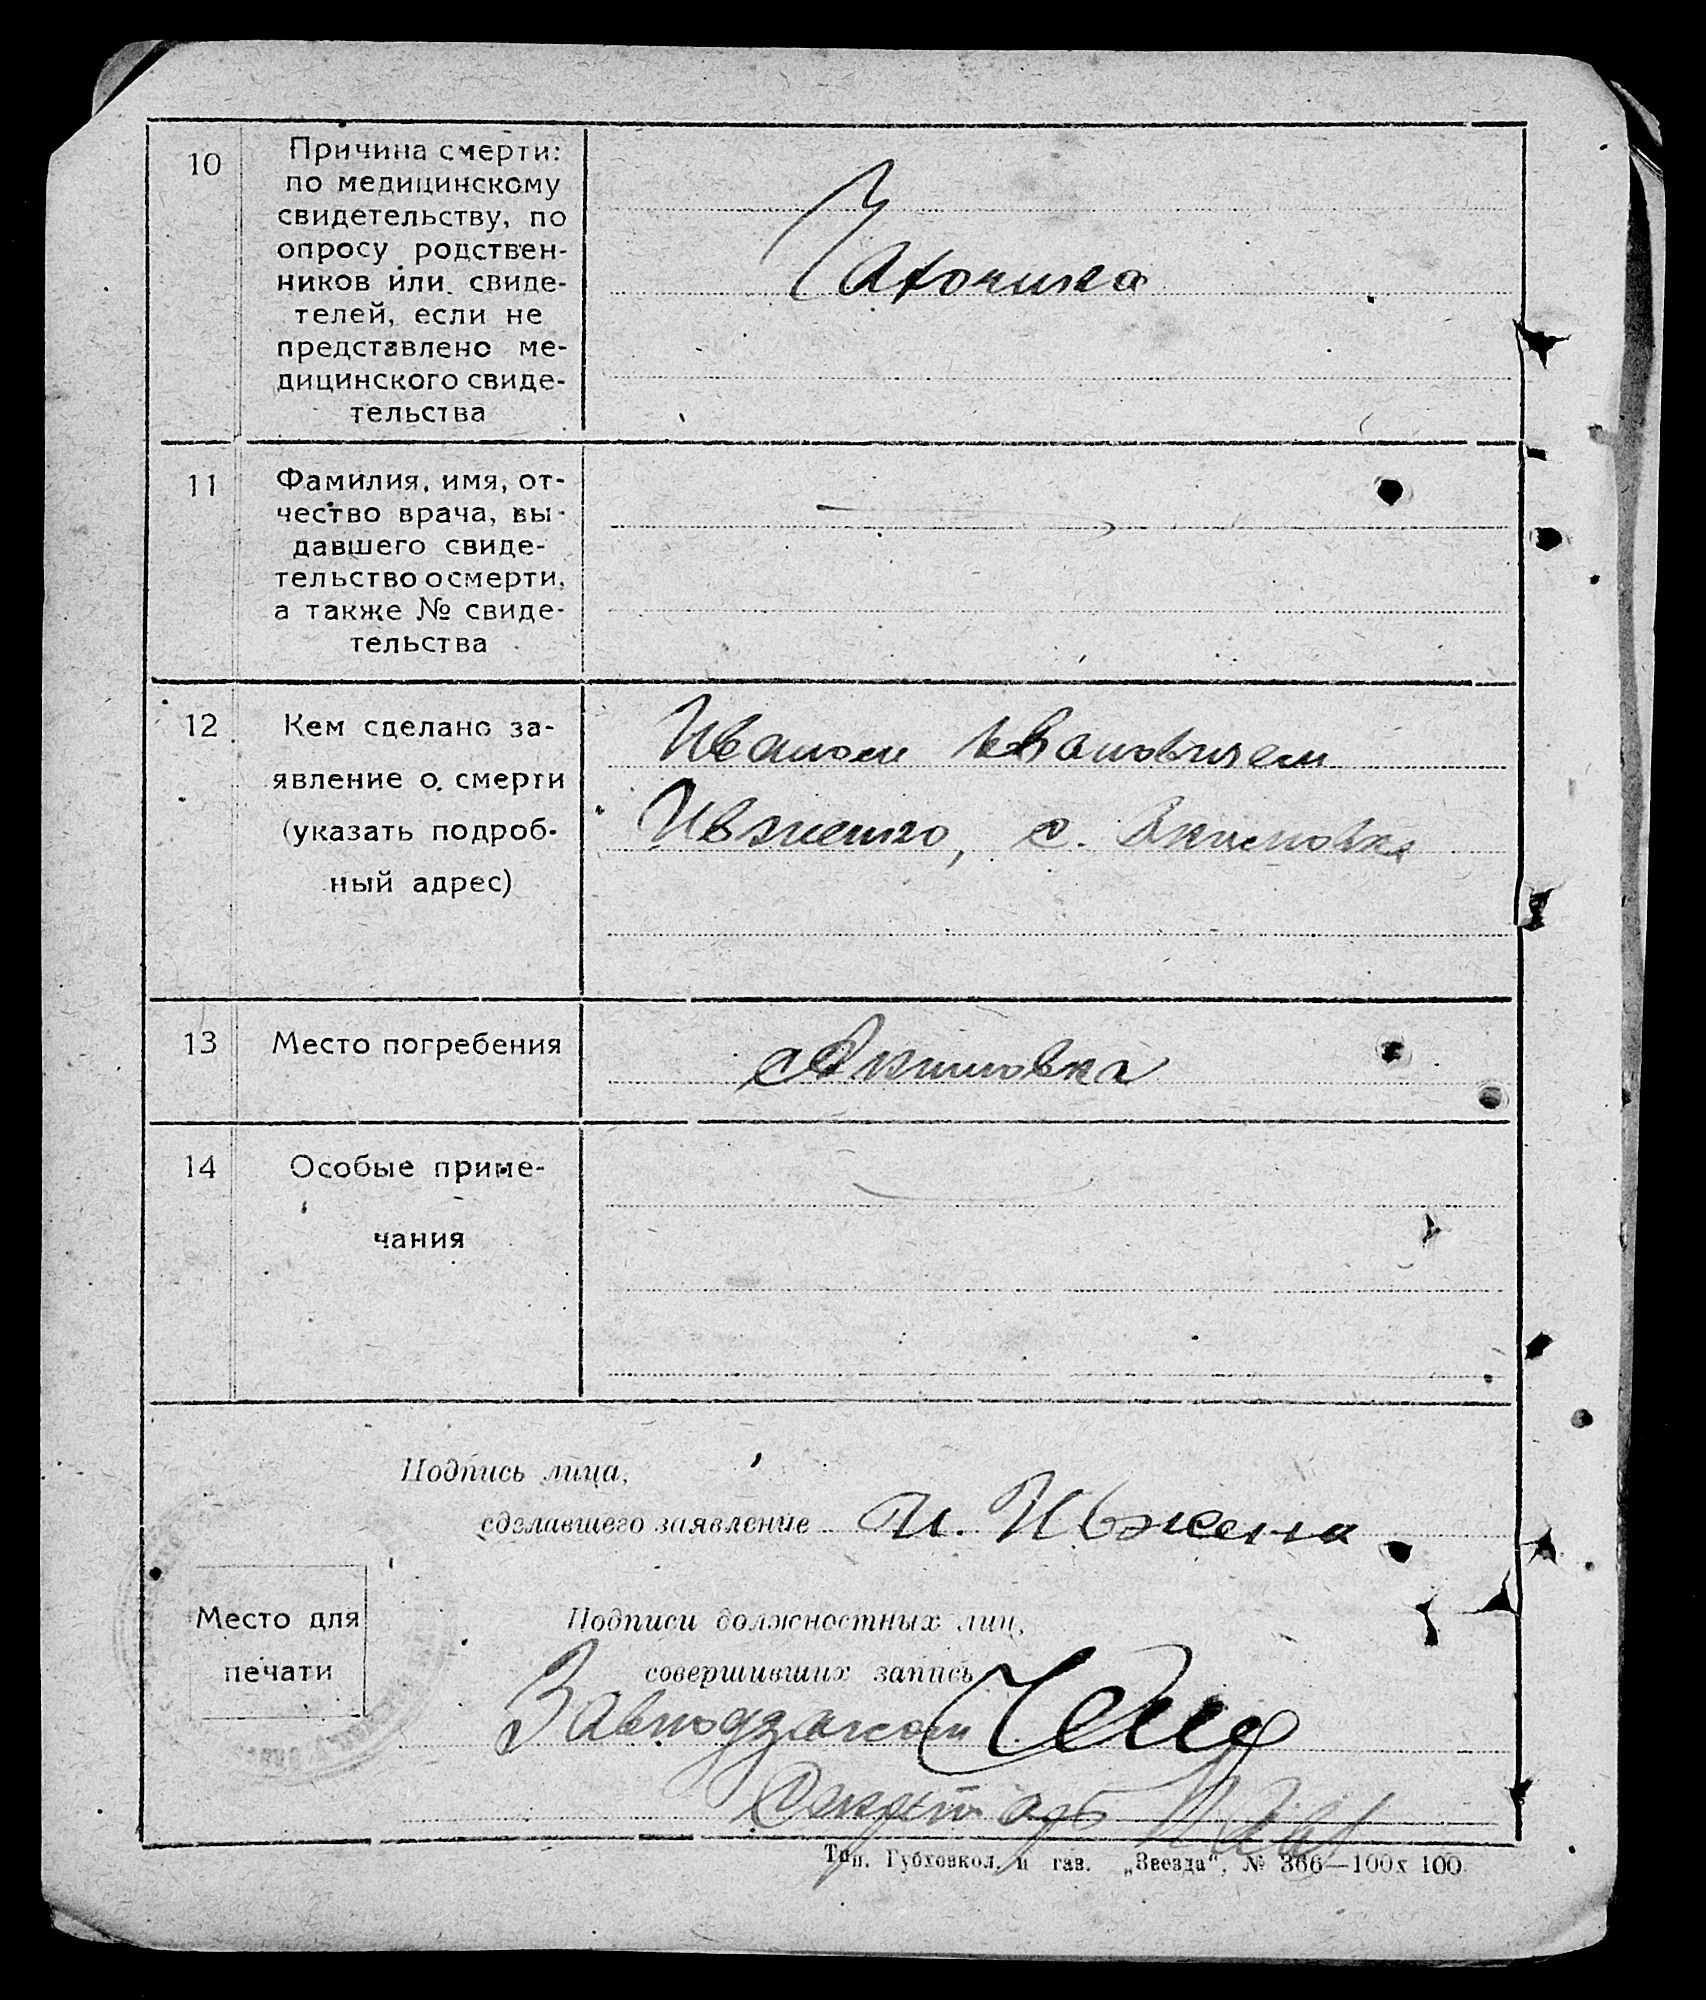 10
Причина смерти:
по медицинскому
свидетельству, по
опросу родствен-
ников или свиде-
телей, если не
представлено ме-
дицинского свиде-
тельства
Чахотка
11
Фамилия, имя, от-
чество врача, вы-
давшего свиде-
тельство о смерти,
а также № свиде-
тельства
12
Кем сделано за-
явление о смерти
(указать подроб-
ный адрес)
Иваном Ивановичем
Ивженко, с. Акимовка
13
Место погребения
Акимовка
14
Особые приме-
чания
Подпись лица,
сделавшего заявление И. Ивженко
Место для
печати
Подписи должностных лиц,
совершивших запись
Завподзагсом
Секретарь
Тип. Губховкол. и газ. „Звезда“, № 366—100х100